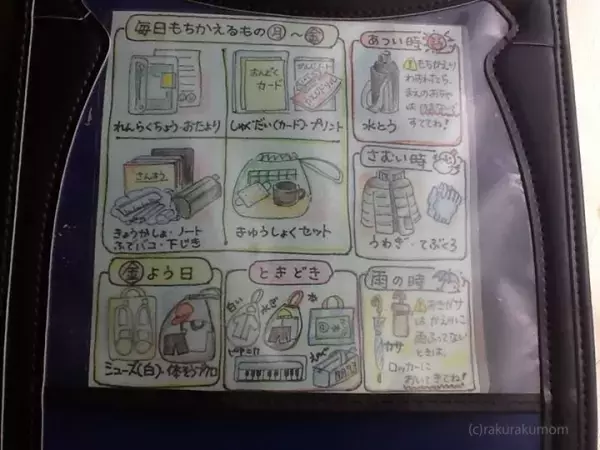 毎日もちかえるもの月〜金
れんらくちょう・おたより
おんどく
カード
しゅくだい(カード)・プリント
さんすう
きょうかしょ・ノート
ふでバコ・下じき
きゅうしょくセット
あつい時
もちかえり
わすれたら、
まえのおちゃ
は
すててね!
水とう
さむい時
うわぎ・てぶくろ
金よう日
シューズ(白)・体そうフク
ときどき
白い
水ぎ
本
ピアニカ
えのぐ
雨の時
カサ
おきガサ
は かえりに
雨ふってない
ときは、
ロッカーに
おいてきてね!
(c)rakurakumom